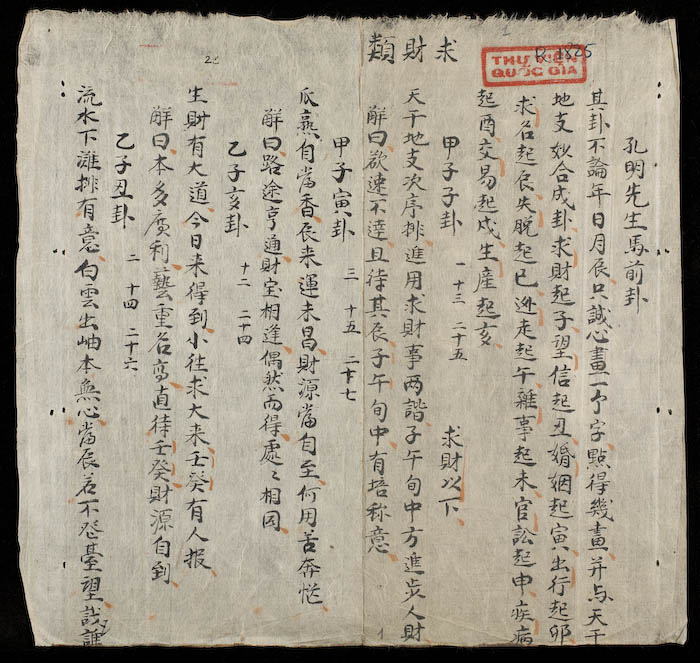 孔明先生馬前卦
其卦不論年日月辰只誠心畫一个字點得幾畫并与天干
地支妙合成卦求財起子望信起丑婚姻起寅出行起卯
求名起辰失脱起巳逊走起午雜事起未官訟起申疾病
起酉交易起戌生産起亥
甲子子卦 一 十三 二十五 求財以下
求財類
天干地支次序排進用求財事两諧子午旬中方進步人財
解曰欲速不達且待其辰子午旬中有培称意
甲子寅卦 三 十五 二十七
瓜熟自當香辰来運未昌財源當自至何用苦奔忙
解曰路途亨通財宝相逢偶然而得處〻相同
乙子亥卦 十二 二十四
生財有大道今日来得到小往求大来壬癸有人报
解曰本多廣利藝重名高直待壬癸財源自到
乙子丑卦 二 十四 二十六
流水下灘排有意白雲出岫本無心當辰若不登臺望哉誰
THƯ VIỆN
QUỐC GIA
R.1825
21
1